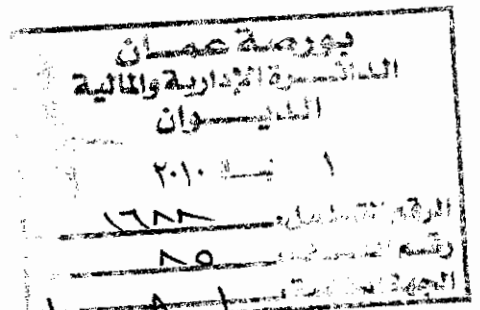 بورصة عمان
الدائرة الإدارية والمالية
الديوان
١ ٢٠١٠
الرقم المتسلسل ١٦٨٨
رقم ٨٥
الجهة